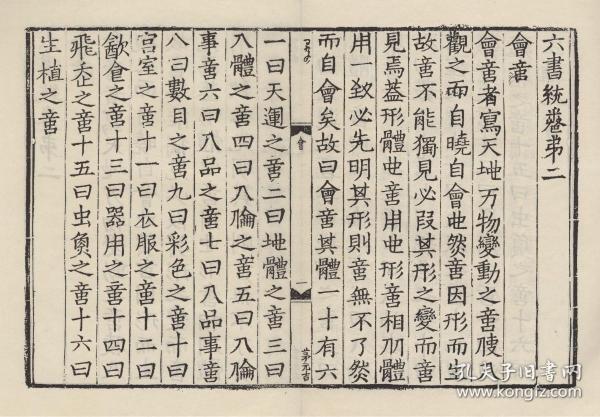 六書統卷弟二
會意
會意者寫天地万物變動之意使
觀之而自曉自會也然意因形而生
故意不能獨見必叚其形之變而意
見焉蓋形體也意用也形意相从體
用一致必先明其形則意無不了然
而自會矣故曰會意其體一十有六
會
一
一曰天運之意二曰地體之意三曰
人體之意四曰人倫之意五曰人倫
事意六曰人品之意七曰人品事意
八曰數目之意九曰彩色之意十曰
宮室之意十一曰衣服之意十二曰
飲食之意十三曰器用之意十四曰
飛走之意十五曰虫魚之意十六曰
生植之意
孔夫子旧书网
www.kongfz.com